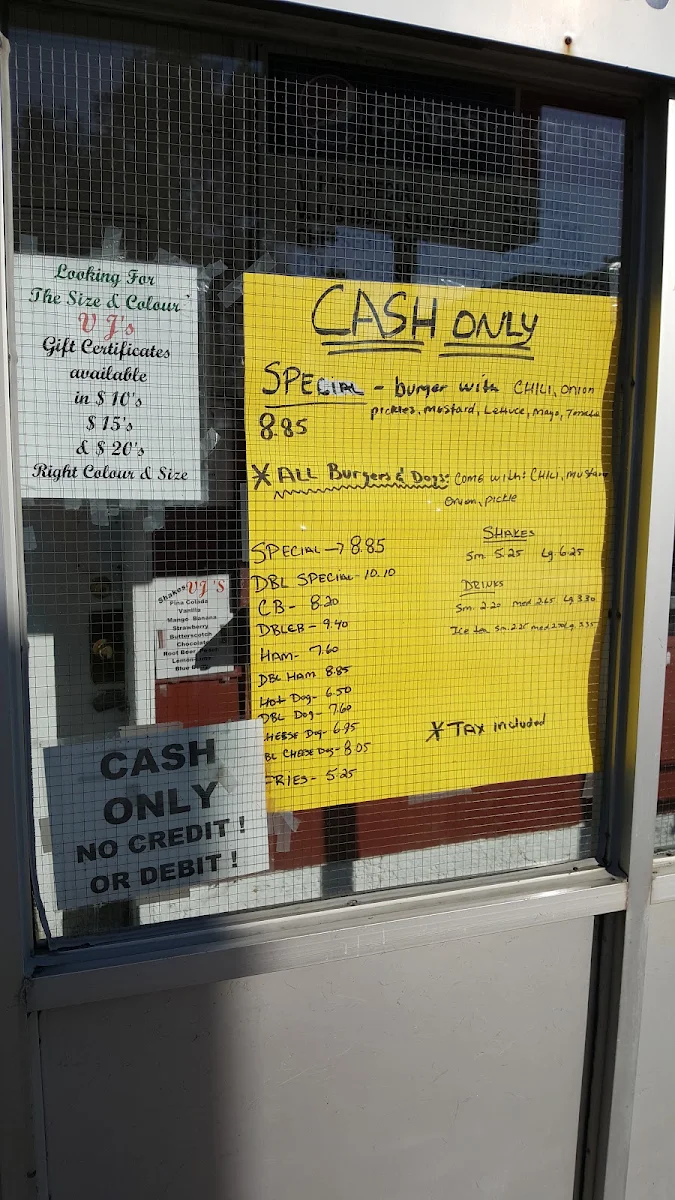 Looking For
The Size & Colour
VJ's
Gift Certificates
available
in $ 10's
$ 15's
& $ 20's
Right Colour & Size
CASH ONLY
SPECIAL - burger with CHILI, onion
pickles, mustard, Lettuce, mayo, Tomato
8.85
* ALL Burgers & Dogs: come with: CHILI, mustard
onion, pickle
SPECIAL → 8.85
DBL SPECIAL - 10.10
CB - 8.20
DBLCB - 9.40
HAM - 7.60
DBL HAM 8.85
Hot Dog - 6.50
DBL Dog - 7.60
CHEESE Dog - 6.95
BL CHEESE Dog - 8.05
FRIES - 5.25
SHAKES
Sm. 5.25 Lg. 6.25
DRINKS
Sm. 2.20 med 2.65 Lg. 3.30
Ice tea Sm. 2.25 med 2.70 Lg. 3.35
* TAX included
Shakes VJ'S
Pina Colada
Vanilla
Mango Banana
Strawberry
Butterscotch
Chocolate
Root Beer
Lemon
Blue
CASH
ONLY
NO CREDIT !
OR DEBIT !